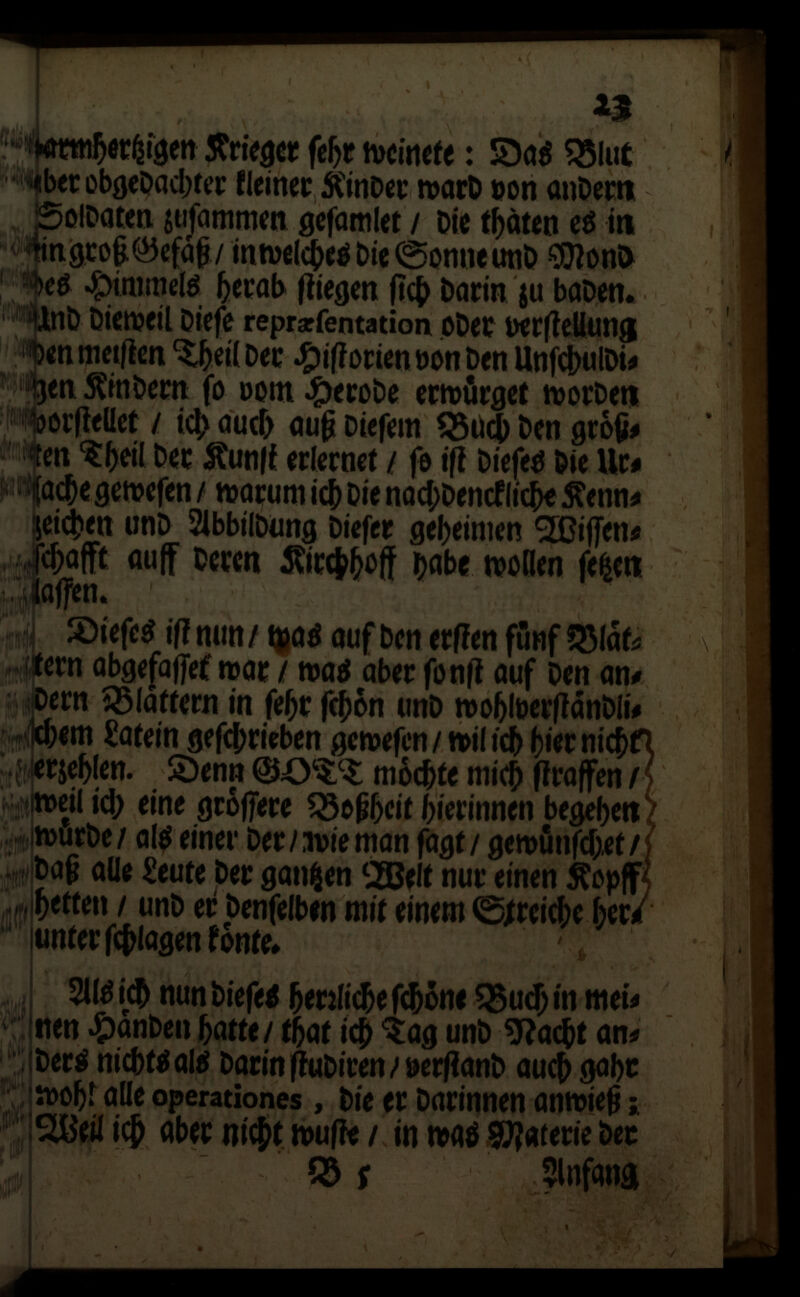 23
armhertzigen Krieger ſehr weinete : Das Blut
aber obgedachter kleiner Kinder ward von andern
Soldaten zuſammen geſamlet / die thäten es in
ein groß Gefäß / in welches die Sonne und Mond
des Himmels herab ſtiegen ſich darin zu baden.
Und dieweil dieſe repræſentation oder verſtellung
den meiſten Theil der Hiſtorien von den Unſchuldi⸗
gen Kindern ſo vom Herode erwürget worden
vorſtellet / ich auch auß dieſem Buch den größ⸗
ten Theil der Kunſt erlernet / ſo iſt dieſes die Ur⸗
ſache geweſen / warum ich die nachdenckliche Kenn⸗
zeichen und Abbildung dieſer geheimen Wiſſen⸗
ſchafft auff deren Kirchhoff habe wollen ſetzen
laſſen.
Dieſes iſt nun / was auf den erſten fünf Blät⸗
tern abgefaſſet war / was aber ſonſt auf den an⸗
dern Blättern in ſehr ſchön und wohlverſtändli⸗
chem Latein geſchrieben geweſen / wil ich hier nicht
erzehlen. Denn GOTT möchte mich ſtraffen /
weil ich eine gröſſere Boßheit hierinnen begehen
würde / als einer der / wie man ſagt / gewünſchet /
daß alle Leute der gantzen Welt nur einen Kopff
hetten / und er denſelben mit einem Streiche her⸗
unter ſchlagen könte.
Als ich nun dieſes herꝛliche ſchöne Buch in mei⸗
nen Händen hatte / that ich Tag und Nacht an⸗
ders nichts als darin ſtudiren / verſtand auch gahr
wohl alle operationes , die er darinnen anwieß ;
Weil ich aber nicht wuſte / in was Materie der
B 5 Anfang